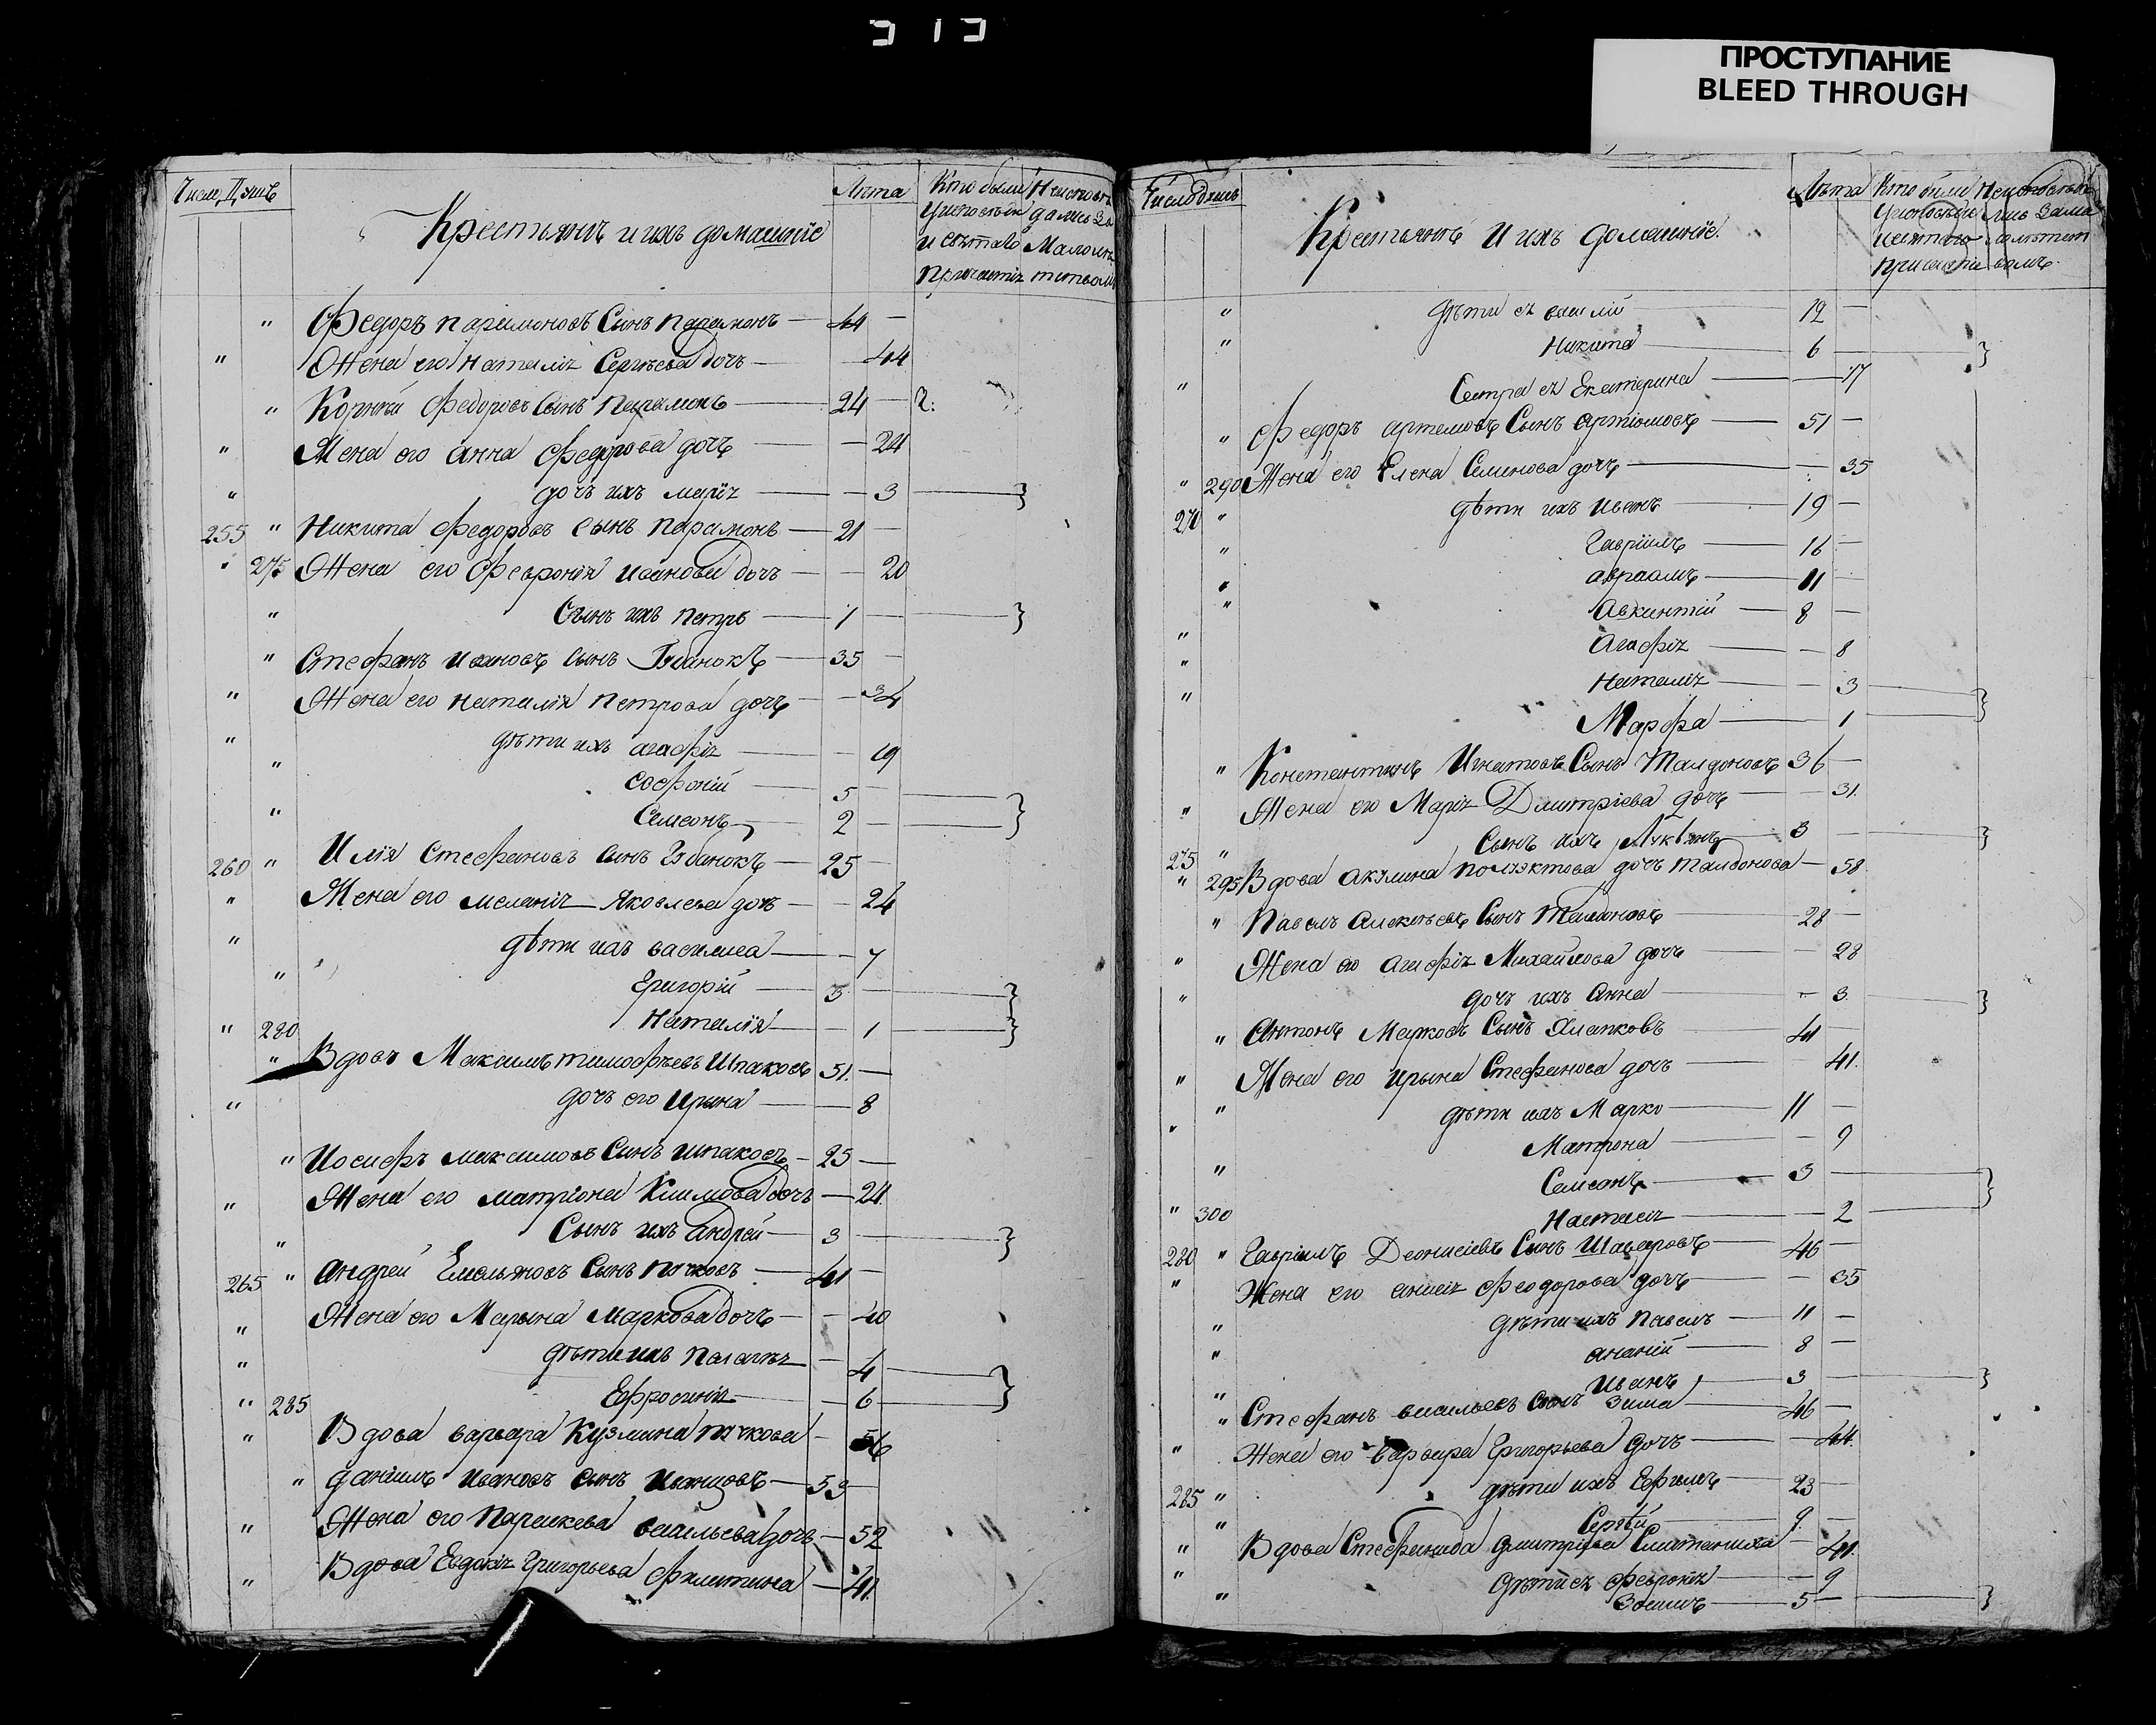 313
ПРОСТУПАНИЕ
BLEED THROUGH
Число Душъ
Крестьянъ и ихъ домашніе
Лѣта
Кто были у исповѣди и святаго причастія
Неисповѣдались за малолѣтствомъ
" Федоръ Парамоновъ сынъ Парамонъ — 44 —
" Жена его Наталія Сергѣева дочъ — 44
" Корнѣй Федоровъ сынъ Парамонъ — 24 —
" Жена его Анна Федорова дочъ — 24
" дочъ ихъ Марія — 3
255 " Никита Федоровъ сынъ Парамонъ — 21 —
" 275 Жена его Февронія Иванова дочъ — 20
" Сынъ ихъ Петръ — 1 —
" Стефанъ Ивановъ сынъ — 35 —
" Жена его Наталія Петрова дочъ — 34
" дѣти ихъ Агафія — 19
" Софроній — 5 —
" Самсонъ — 2 —
260 " Илія Стефановъ сынъ — 25 —
" Жена его Меланія Яковлева дочъ — 24
" дѣти ихъ Василиса — 7
" Григорій — 3 —
" 280 Наталія — 1
" Вдовъ Максимъ Тимофѣевъ Шпаковъ 51 —
" дочъ его Ирина — 8
" Иосифъ Максимовъ Сынъ Шпаковъ — 25 —
" Жена его Матріона Климова дочъ — 24
" Сынъ ихъ Андрей — 3 —
265 " Андрей Емельяновъ Сынъ — 41 —
" Жена его Марына Маркова дочъ — 40
" дѣти ихъ Палагія — 4
" 285 Ефросинія — 6
" Вдова Варвара Кузмина — 56
" Даніилъ Ивановъ сынъ — 53 —
" Жена его Параскева Васильева дочъ — 52
" Вдова Евдокія Григорьева — 41
Число Душъ
Крестьянъ и ихъ домашніе.
Лѣта
Кто были у исповѣди и святаго причастія
Неисповѣдались за малолѣтствомъ
" дѣти ея Василій — 12 —
" Никита — 6 —
" Сестра ея Екатерина — 17
" Федоръ Артемовъ Сынъ Артіомовъ — 51 —
" 290 Жена его Елена Семенова дочъ — 35
270 " дѣти ихъ Иванъ — 19 —
" Гавріилъ — 16 —
" Авраамъ — 11 —
" Авкинтій — 8 —
" Агафія — 8
" Наталія — 3
" Марфа — 1
" Константинъ Игнатовъ Сынъ Талдоновъ 36 —
" Жена его Марія Дмитріева дочъ — 31.
275 " Сынъ ихъ Лукіянъ — 3 —
" 295 Вдова Акулина Поліэктова дочъ Талдонова — 58
" Павелъ Алексѣевъ Сынъ Талдоновъ — 28 —
" Жена его Агафія Михайлова дочъ — 28
" дочъ ихъ Анна — 3.
" Антонъ Марковъ Сынъ — 41
" Жена его Ирына Стефанова дочъ — 41.
" дѣти ихъ Марко — 11 —
" Матрона — 9
" Самсонъ — 3 —
" 300 Настасія — 2
280 " Гавріилъ Деонисіевъ Сынъ — 46 —
" Жена его Анисія Феодорова дочъ — 35
" дѣти ихъ Павелъ — 11 —
" Ананій — 8 —
" Иванъ — 3 —
" Стефанъ Васильевъ Сынъ Зима — 46 —
" Жена его Варвара Григорьева дочъ — 44.
285 " дѣти ихъ Ефимъ — 23 —
" Сергѣй — 9. —
" Вдова Стефанида Дмитріева — 41.
" дѣти ея Февронія — 9
" Зосимъ — 5 —